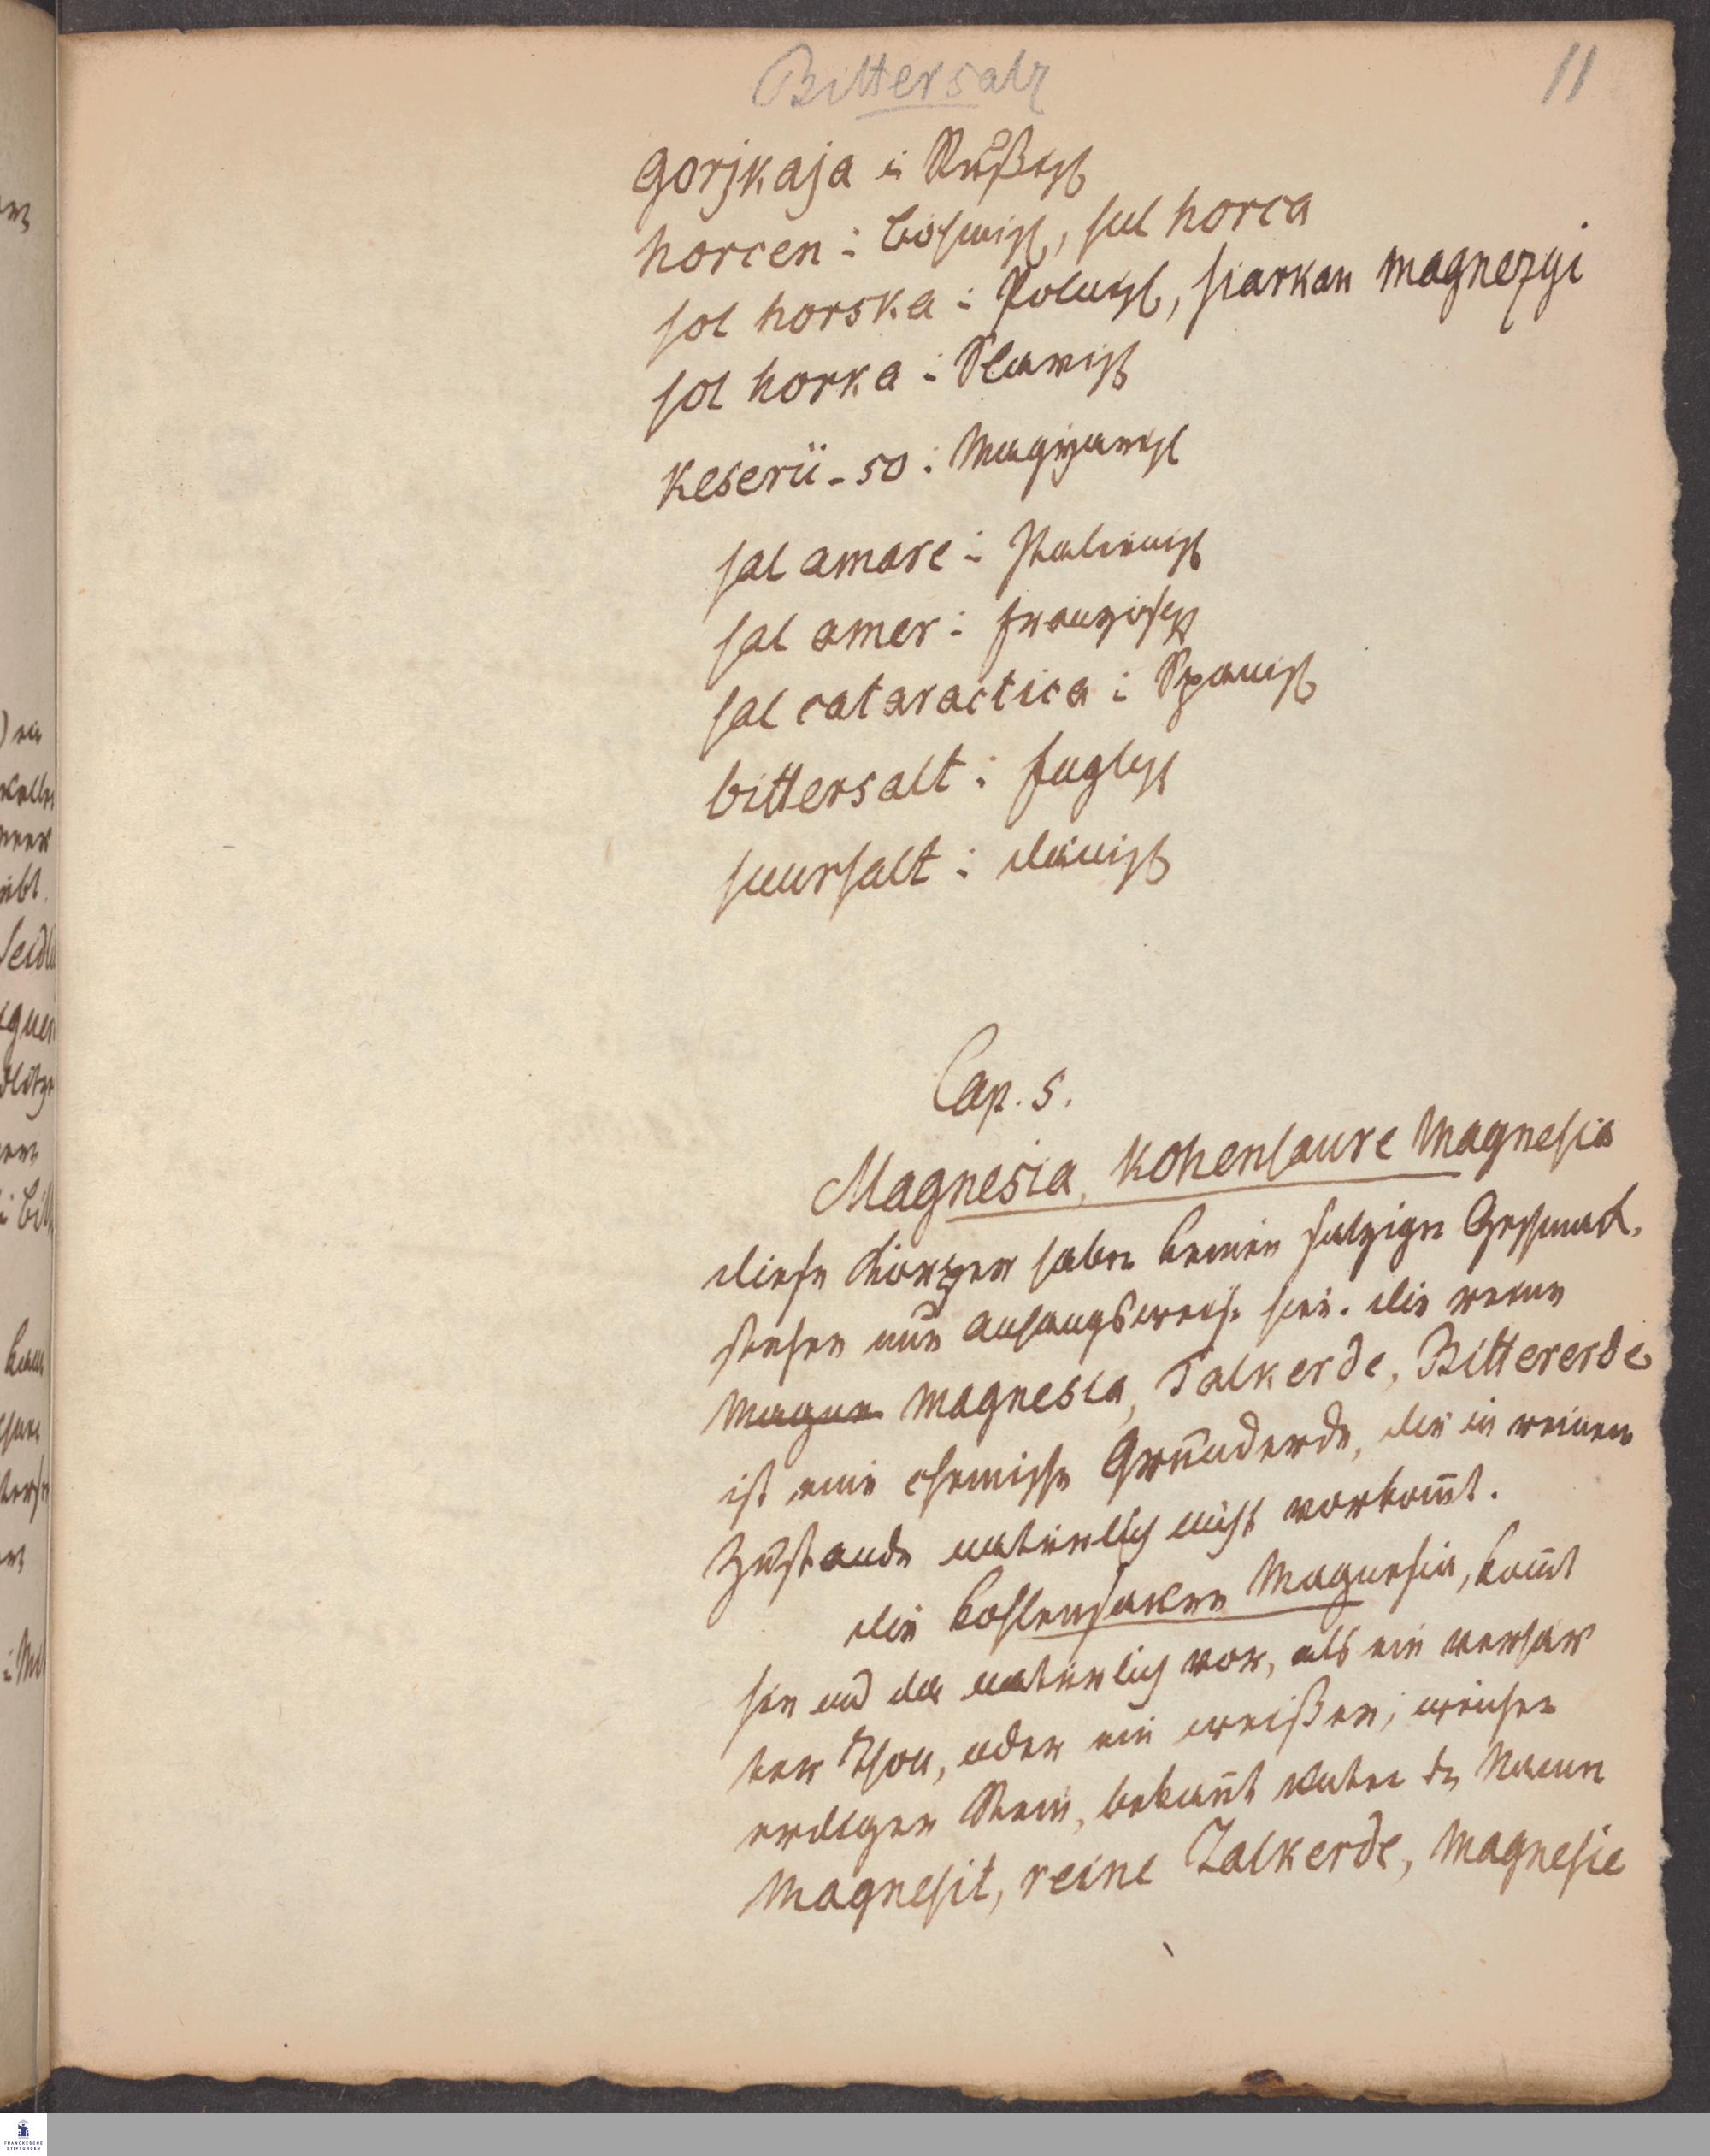 Bittersalz
11
gorjkaja : Rußisch
horcen : Böhmisch, sul horca
sol horska : Polnisch, siarkan magnezyi
sol horka : Slawisch
Keserü-so : Magyarisch
sal amare : Italienisch
sal amer : französisch
sal cataractica : Spanisch
bittersalt : Englisch
suursalt : dänisch
Cap. 5.
Magnesia, kohensaure Magnesia
diese Körper haben keinen salzigen Geschmack,
stehen nur anhangsweise hier. die reine
Magne Magnesia, Talkerde, Bittererde
ist eine chemische Grunderde, die in reinem
Zustande natürlich nicht vorkom̅t.
die kohlensaure Magnesia, kom̅t
hie und da natürlich vor, als ein verhär
ter Thon, oder ein weißer, weicher
erdiger Stein, bekan̅t unter den Namen
Magnesit, reine Talkerde, Magnesie
FRANCKESCHE
STIFTUNGEN